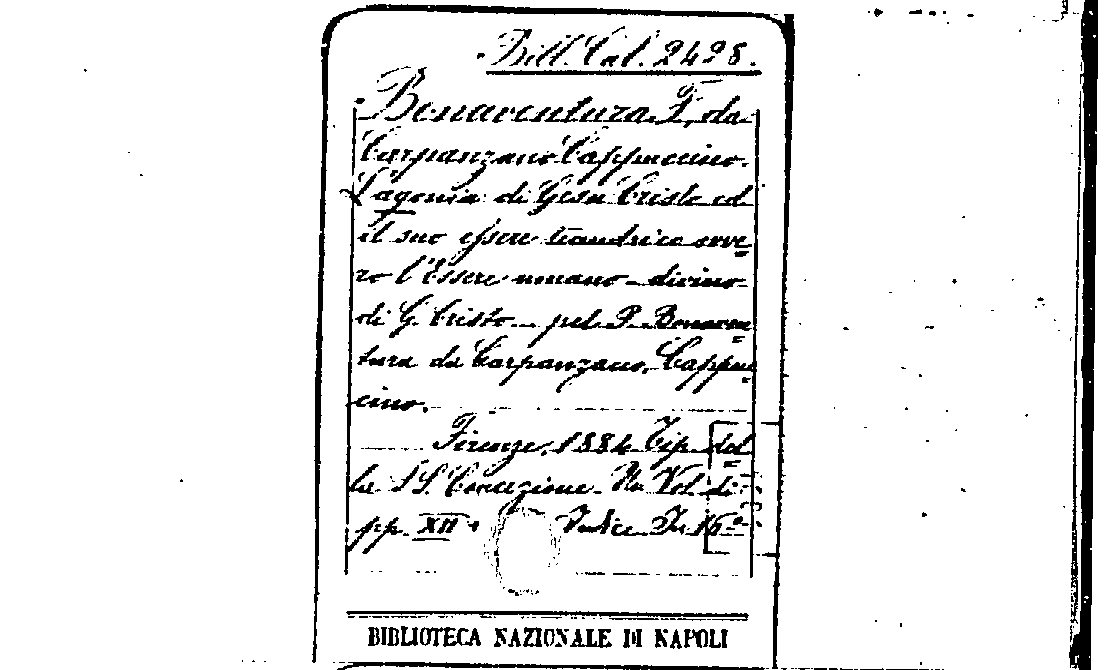 Bibl. Cal. 2428.
Bonaventura F. da
Carpanzano Cappuccino.
L'agonia di Gesu Cristo ed
il suo essere teandrico ovve=
ro l'Essere umano-divino
di G. Cristo - pel P. Bonaven=
tura da Carpanzano, Cappuc=
cino.
Firenze, 1884 Tip. del=
la SS. Concezione. Un Vol. di
pp. XII + Indice. In 16°
BIBLIOTECA NAZIONALE DI NAPOLI